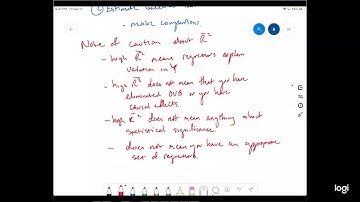 ① Estimate
- make comparisons
Note of caution about R̄²
- high R̄² means regressors explain
variation in Y
- high R̄² does not mean that you have
eliminated OVB or you have
causal effects
- high R̄² does not mean anything about
statistical significance
- does not mean you have an appropriate
set of regressors.
logi